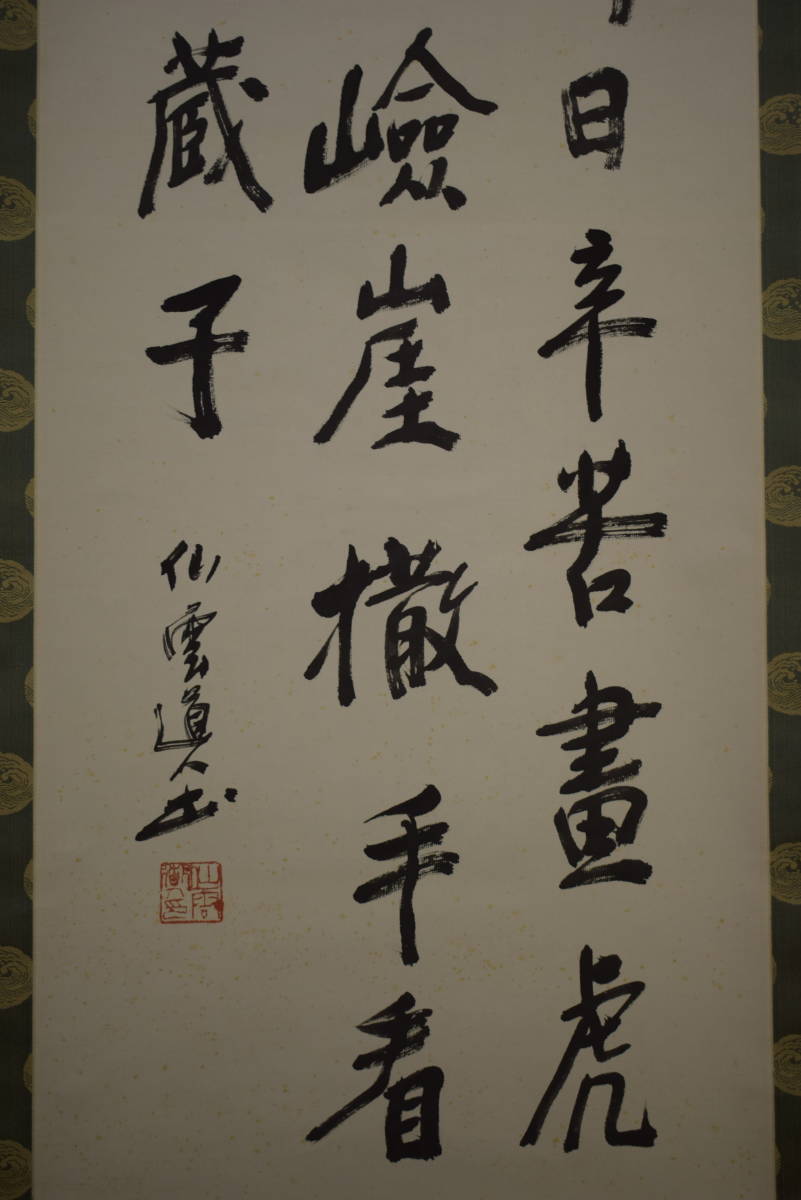 日辛苦畫虎
嶮崖撒手看
蔵子
仙雲道人書